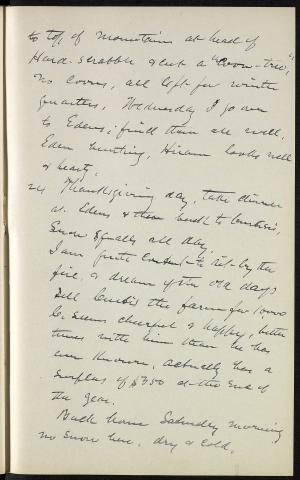 to top of mountain at head of
Hard-scrabble & cut a "Coon-tree",
No coons, all left for winter
quarters. Wednesday I go over
to Edens; find them all well,
Eden hunting, Hiram looks well
& hearty.
24 Thanksgiving day, take dinner
at Edens & then back to Curtis's,
Snow squalls all day.
I am quite content to sit by the
fire, & dream of the old days
tell Curtis the farm for 1000
C. seems cheerful & happy, better
times with him than he has
ever known. actually has a
surplus of $350 at the end of
the year.
Back home Saturday morning
no snow here, dry & cold.